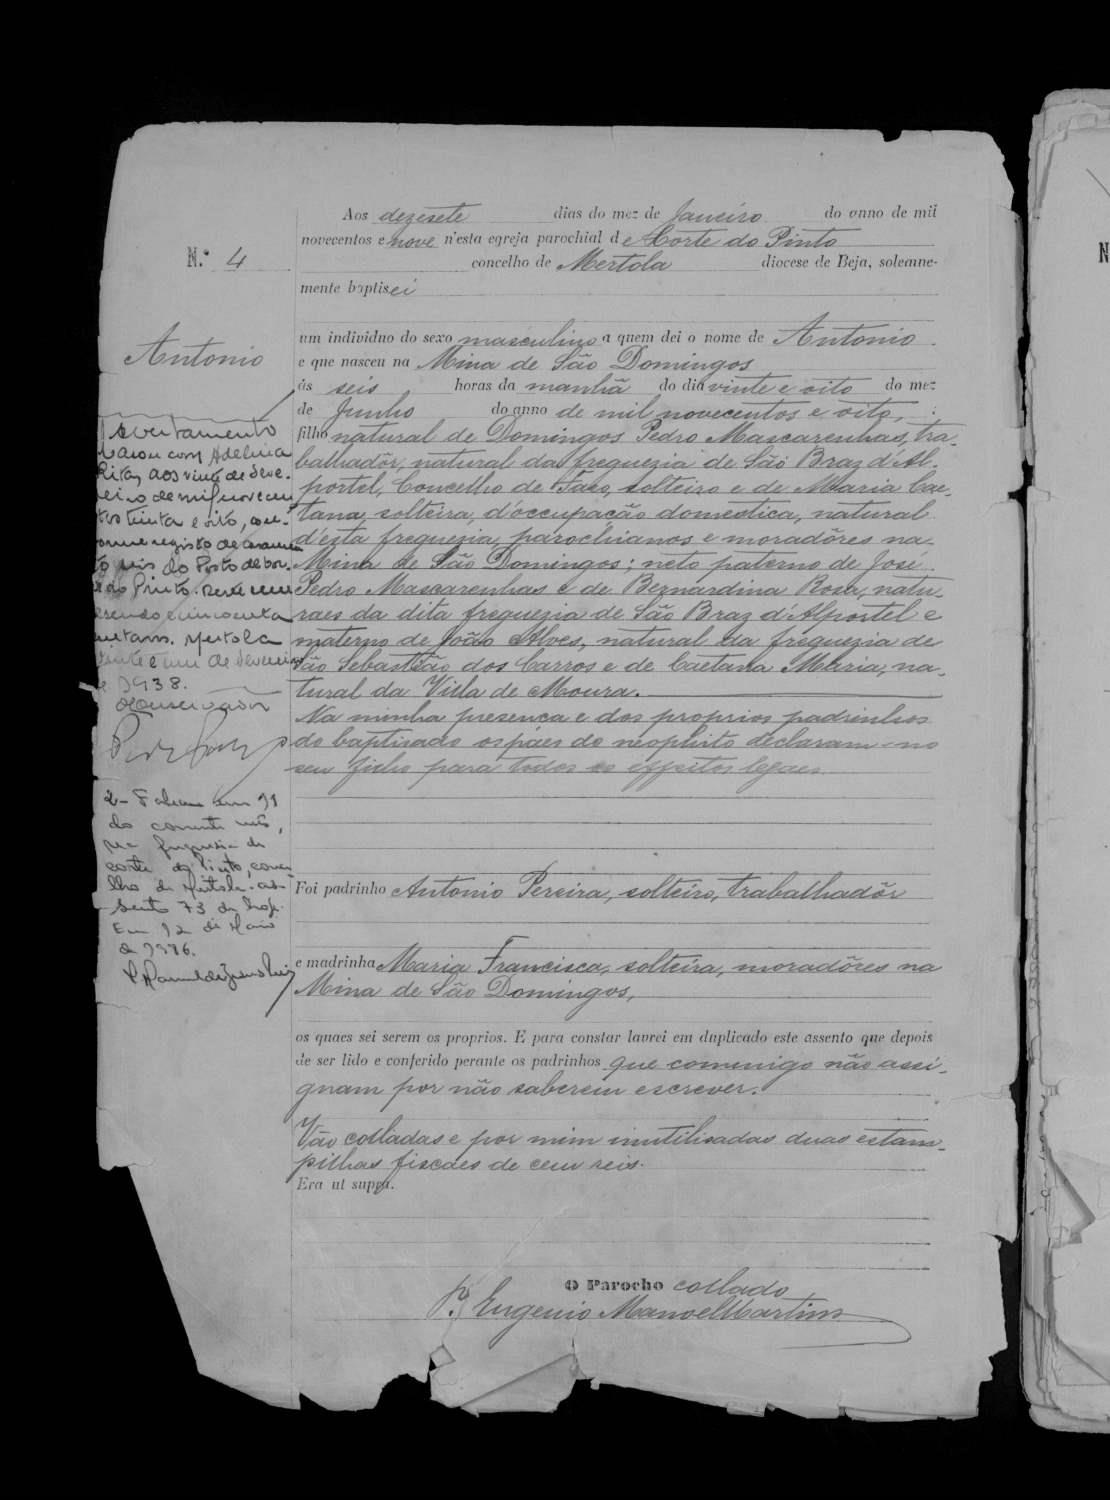 Aos dezesete dias do mez de Janeiro do anno de mil
novecentos e nove n'esta egreja parochial de Corte do Pinto
N.º 4
concelho de Mertola diocese de Beja, solemne-
mente baptisei
um individuo do sexo masculino a quem dei o nome de Antonio
Antonio
e que nasceu na Mina de São Domingos
ás seis horas da manhã do dia vinte e oito do mez
de Junho do anno de mil novecentos e oito,
filho natural de Domingos Pedro Mascarenhas, tra-
balhadôr, natural da freguezia de São Braz d'Al-
portel, Concelho de Faro, solteiro e de Maria Cae-
tana, solteira, d'occupação domestica, natural
d'esta freguezia, parochianos e moradôres na
Mina de São Domingos; neto paterno de José
Pedro Mascarenhas e de Bernardina Rosa, natu-
raes da dita freguezia de São Braz d'Alportel e
materno de João Alves, natural da freguezia de
São Sebastião dos Carros e de Caetana Maria, na-
tural da Villa de Moura.
Na minha presença e dos proprios padrinhos
do baptisado os páes do neophito declaram-no
seu filho para todos os effeitos legaes
Foi padrinho Antonio Pereira, solteiro, trabalhadôr
e madrinha Maria Francisca, solteira, moradôres na
Mina de São Domingos,
os quaes sei serem os proprios. E para constar lavrei em duplicado este assento que depois
de ser lido e conferido perante os padrinhos que commigo não assi-
gnam por não saberem escrever.
Vão colladas e por mim inutilisadas duas estam-
pilhas fiscaes de cem reis.
Era ut supra.
O Parocho collado
P.e Eugenio Manoel Martins
Averbamento
Casou com Adelina
Rita, aos vinte de Feve-
reiro de mil novecen
tos trinta e oito, con-
forme registo de casamen
to do Posto de Cor-
te do Pinto.
Mertola
vinte e um de Fevereiro
de 1938.
O Conservador
2- Faleceu em 11
do corrente mês,
na freguesia de
Corte do Pinto, conce
lho de Mértola. as-
sento 73 de
Em 12 de Maio
de 1976.
N